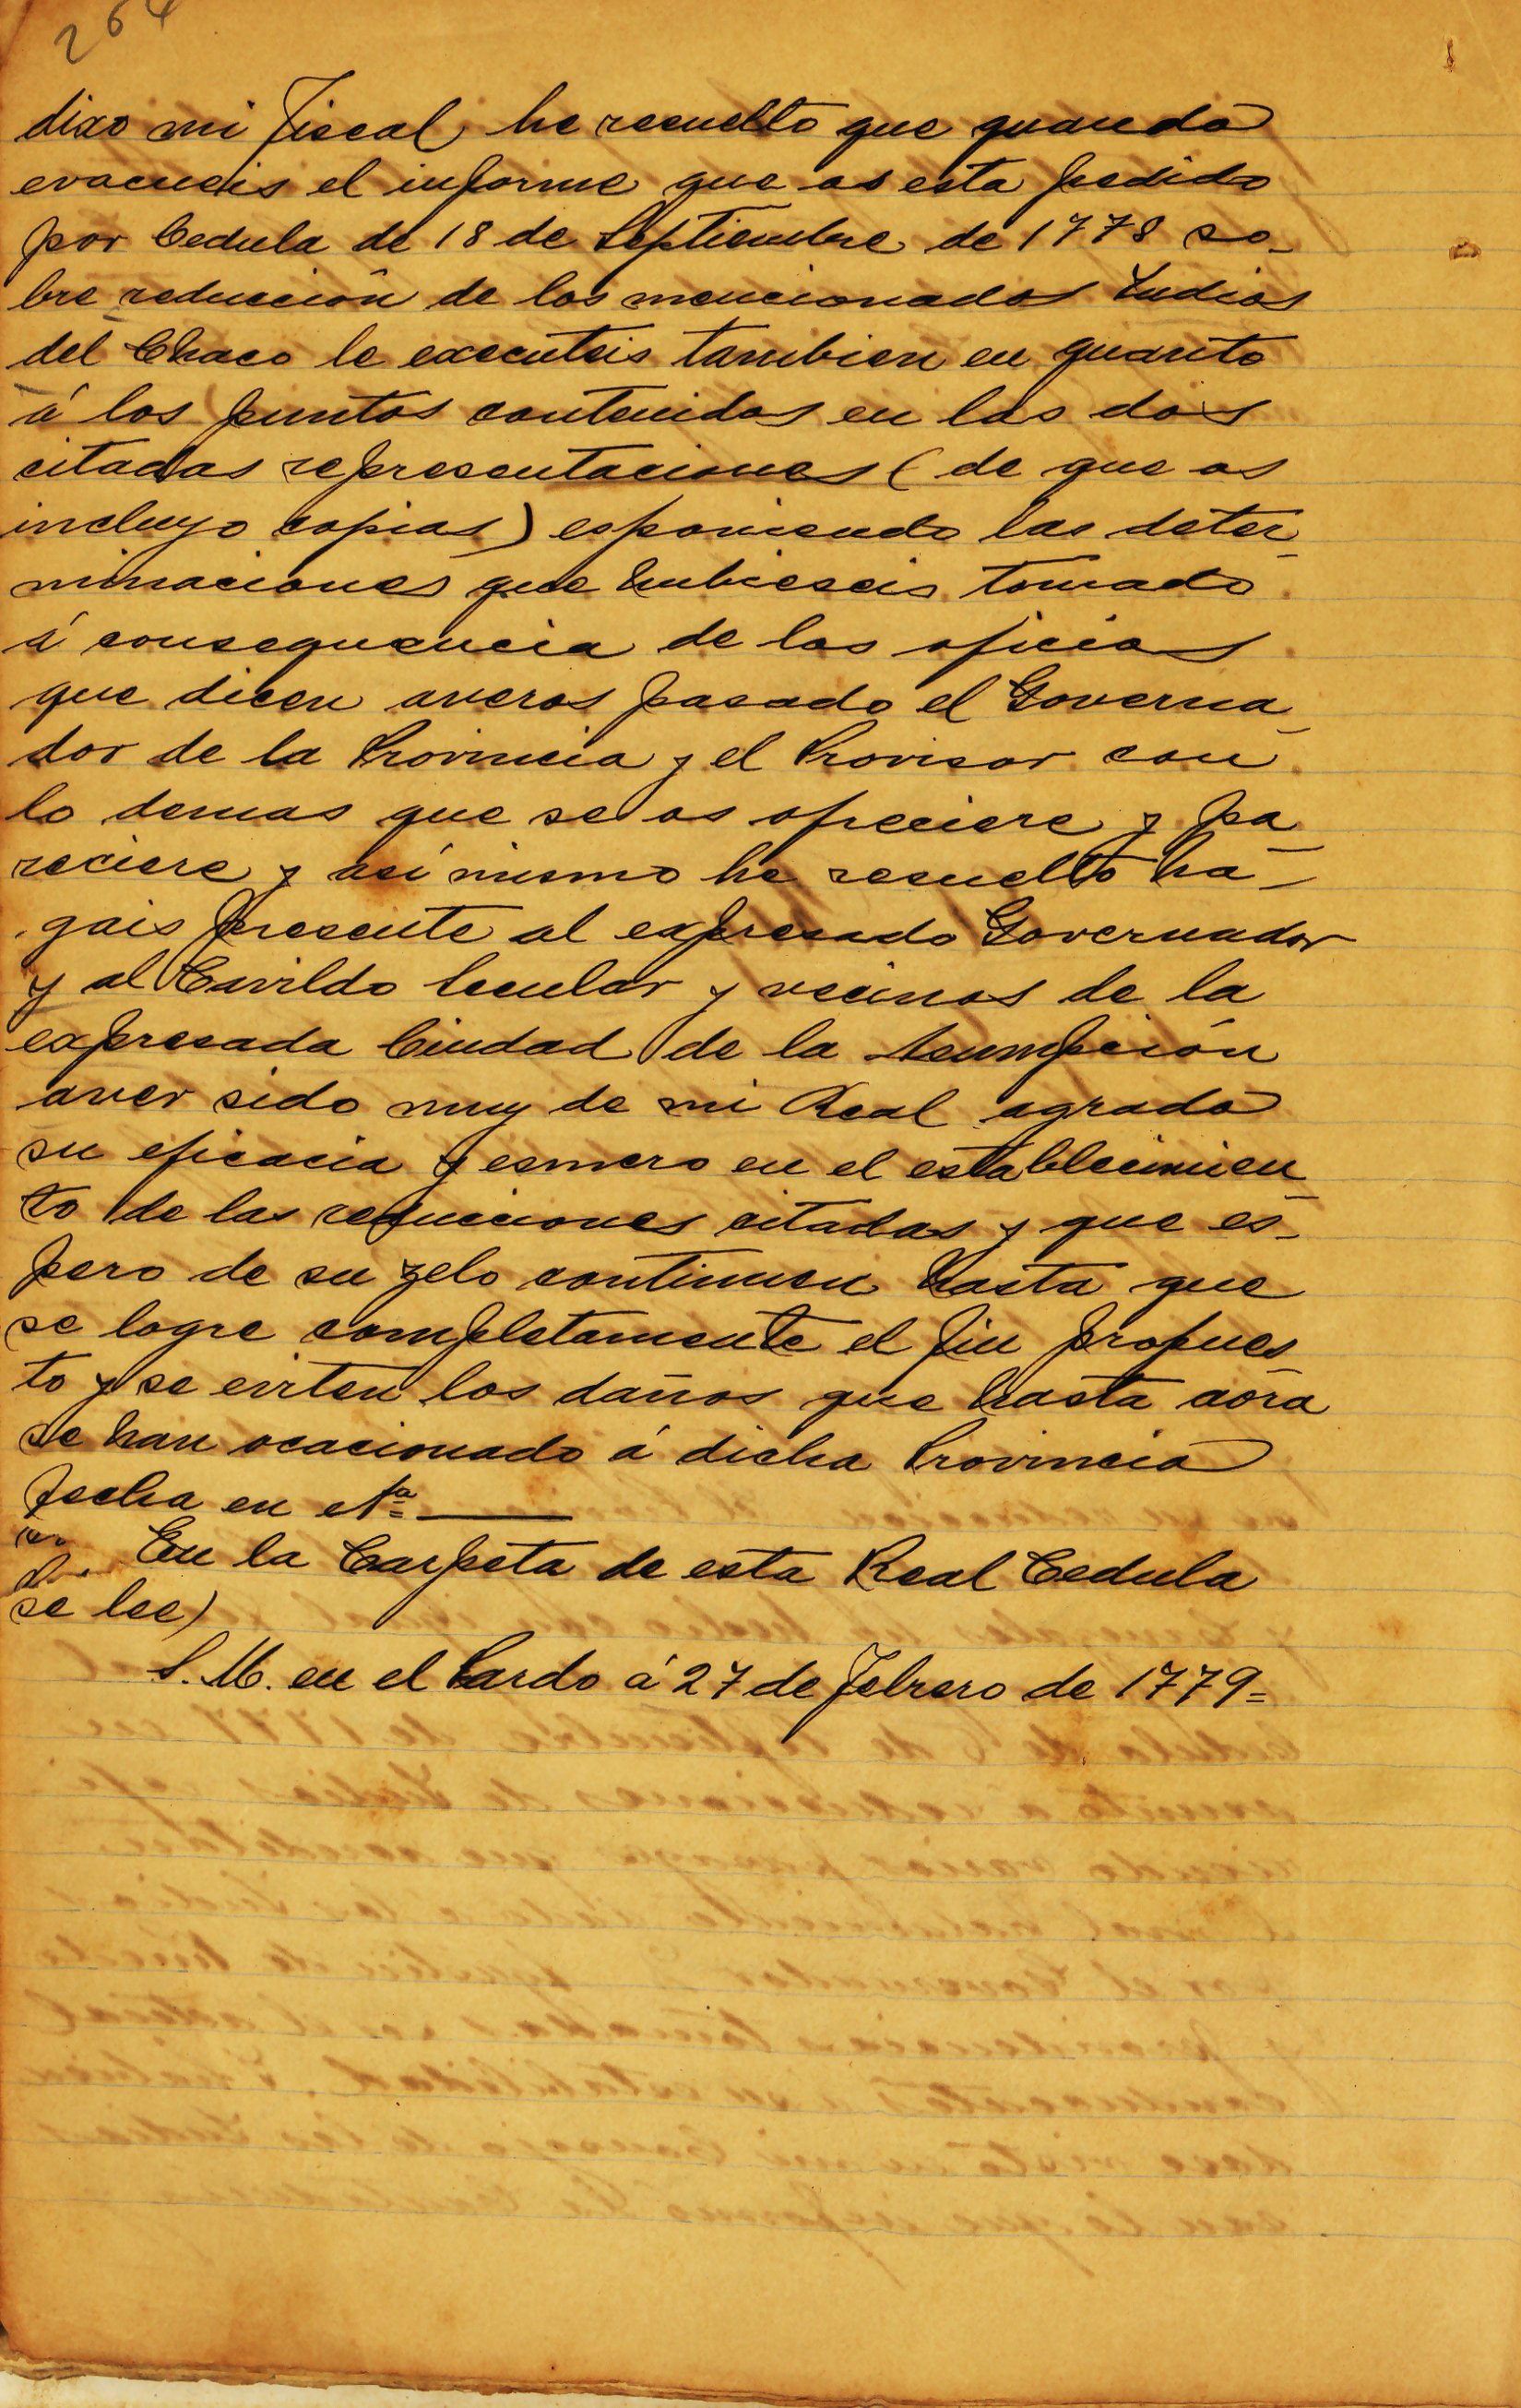 264
dixo mi Fiscal he resuelto que quando
evacueis el informe que os esta pedido
por Cedula de 18 de Septiembre de 1778 so-
bre reducción de los mencionados Indios
del Chaco le executeis tambien en quanto
á los puntos contenidos en las dos
citadas representaciones (de que os
incluyo copias) esponiendo las deter-
minaciones que hubieseis tomado
á consequencia de los oficios
que dicen averos pasado el Governa-
dor de la Provincia y el Provisor con
lo demas que se os ofreciere y pa-
reciere y así mismo he resuelto ha-
gais presente al expresado Governador
y al Cavildo Secular y vecinos de la
expresada Ciudad de la Asumpción
aver sido muy de mi Real agrado
su eficacia y esmero en el establecimien-
to de las reducciones citadas y que es-
pero de su zelo continuen hasta que
se logre completamente el fin propues
to y se eviten los daños que hasta aora
se han ocacionado á dicha Provincia
fecha en
En la Carpeta de esta Real Cedula
se lee)
S. M. en el Pardo á 27 de Febrero de 1779=